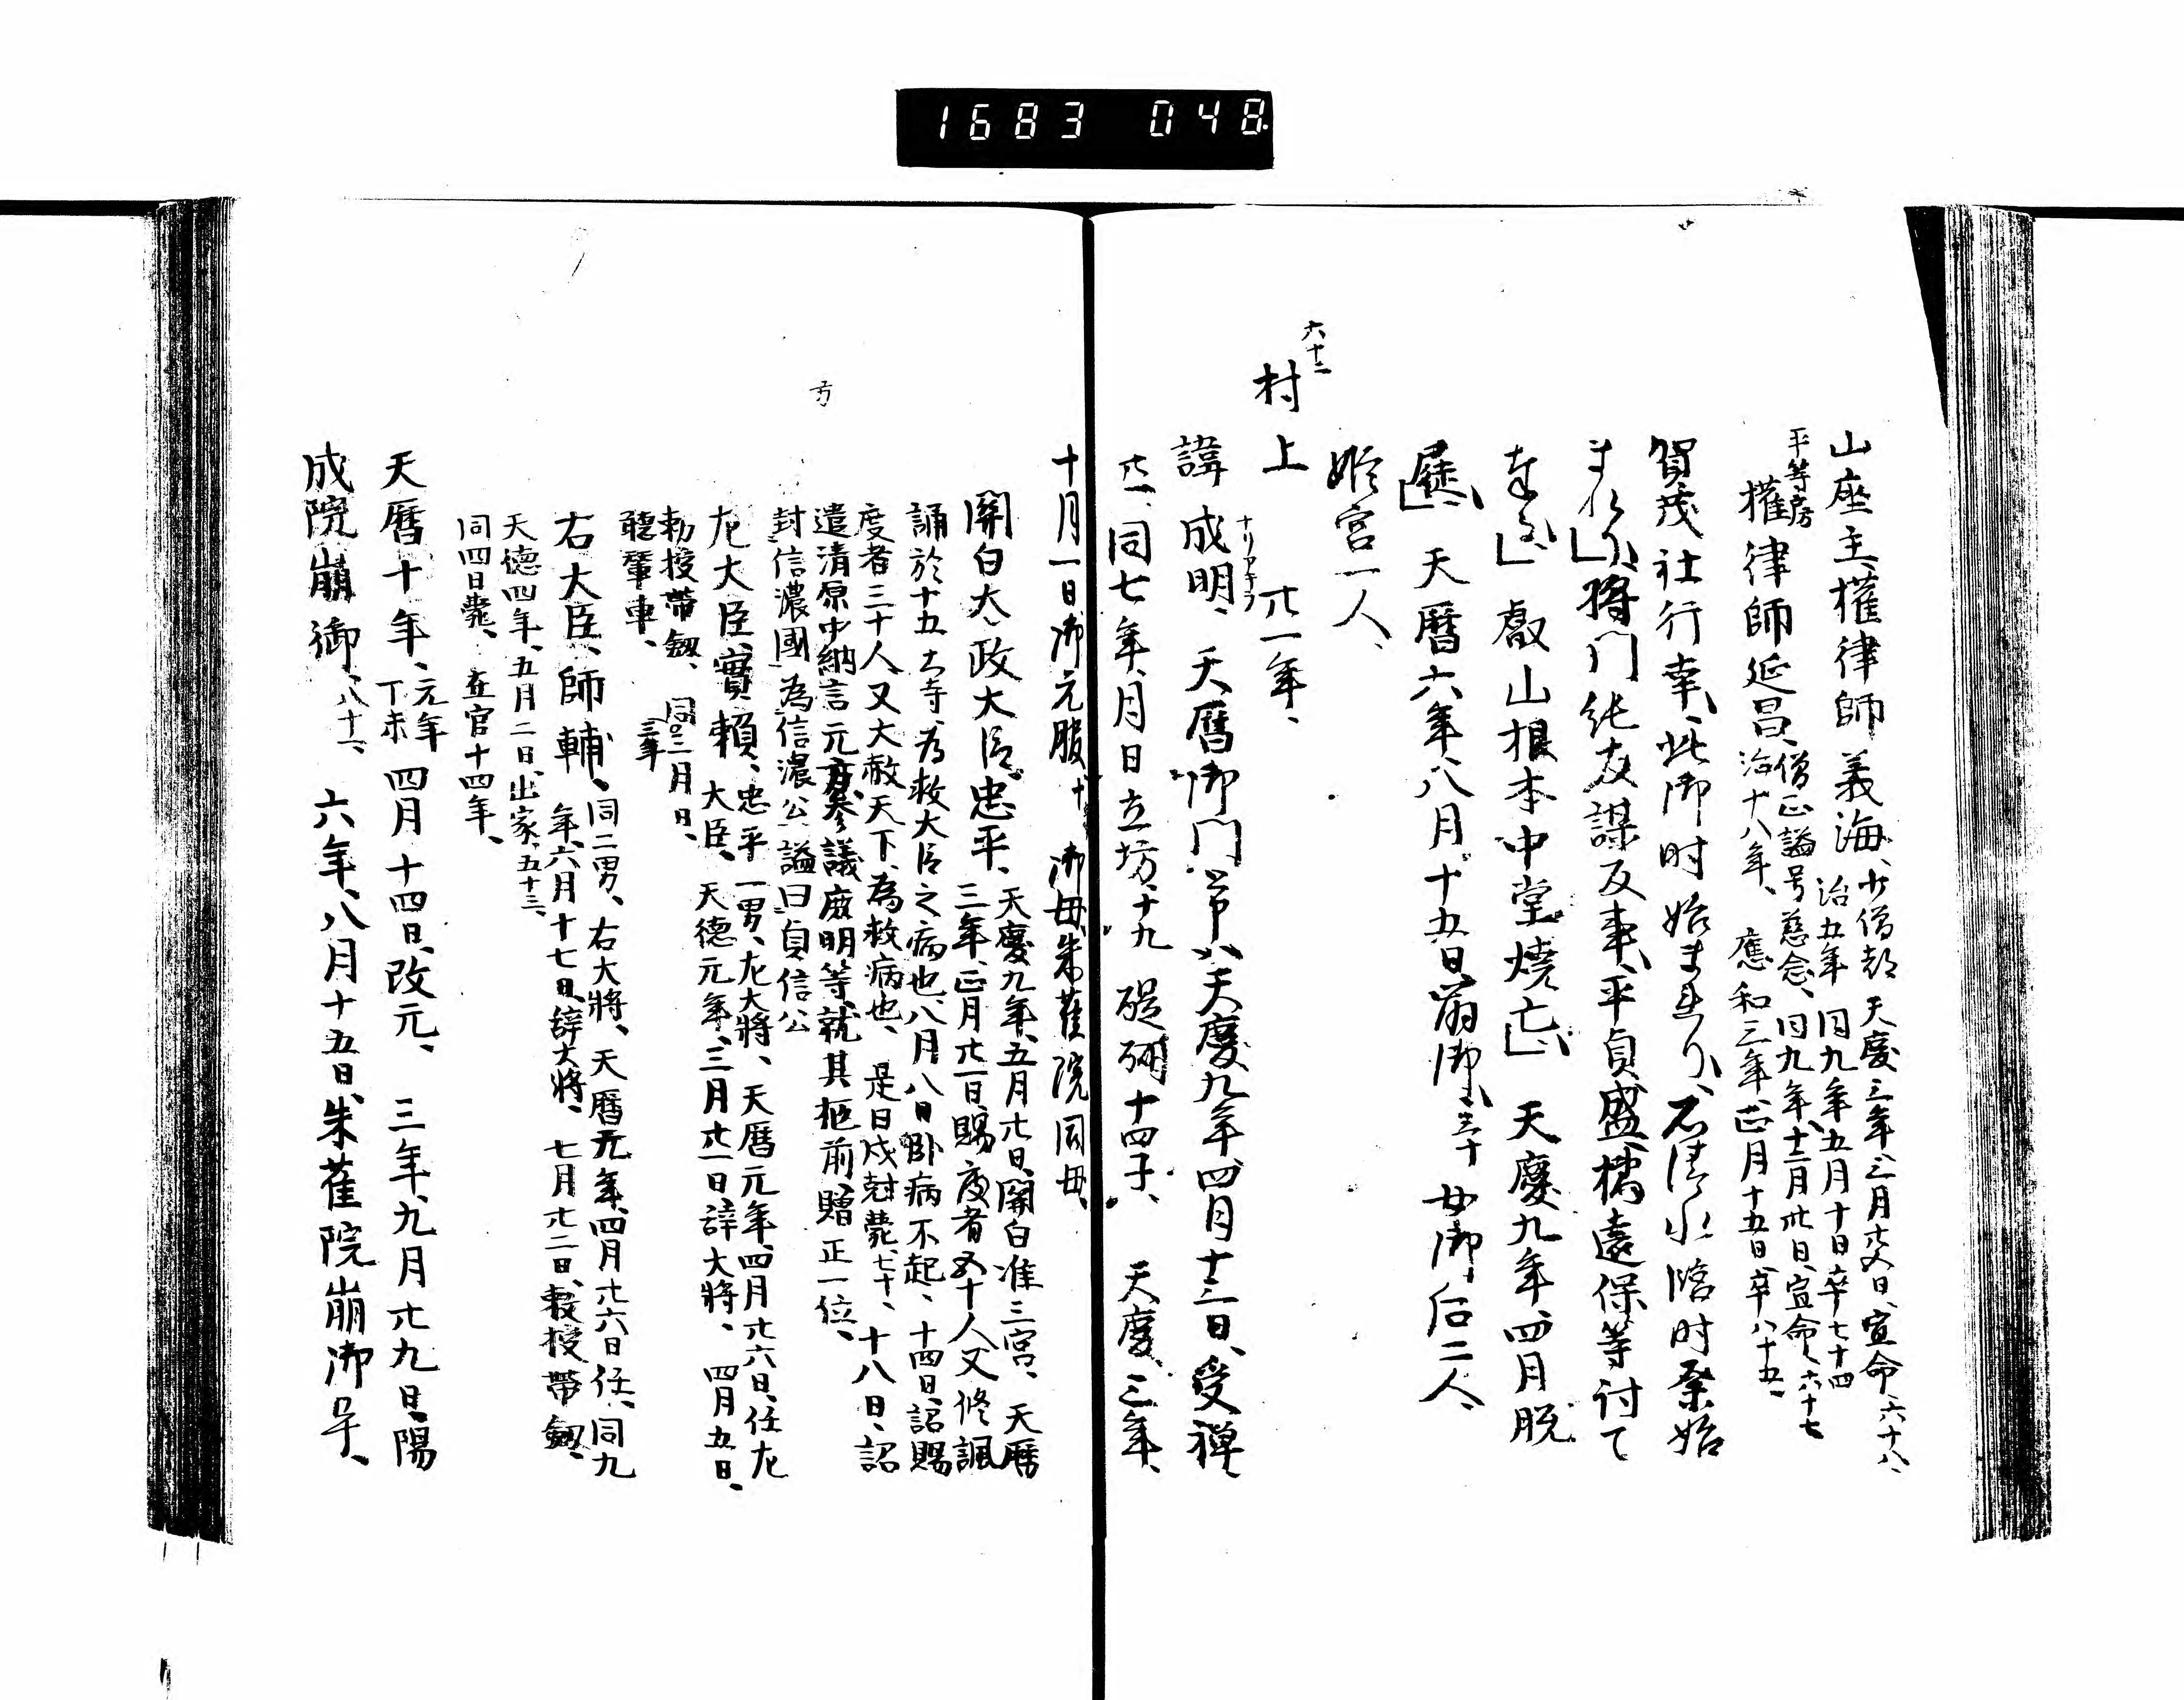 1683 048.
山座主、權律師義海、少僧都 天慶三年、三月廿五日、宣命、六十八、
治五年 同九年五月十日卒七十四
平等房
權律師延昌、僧正謚号慈念、同九年、十二月卅日、宣命、六十七
治十八年、 應和三年、正月十五日、卒八十五、
賀茂社行幸、此御时始まれり、石清水臨时祭始
まれり、將门純友謀反事、平貞盛、橘遠保等討て
叡山根本中堂燒亡、 天慶九年、四月脱
屣、 天曆六年八月十五日崩御、三十 女御后二人、
姫宮一人、
六十二
村上 廿一年、
ナリアキラ
諱 成明、 天曆御门 天慶九年四月十三日、受禅、
廿一、同七年、月日立坊、十九 醍醐十四子、 天慶三年、
十月一日御元服十 御母、朱雀院同母、
關白太政大臣忠平、天慶九年、五月廿日、關白准三宮、 天曆
三年、正月廿一日、賜度者五十人又修諷
誦於十五大寺、为救大臣之病也、八月八日卧病不起、十四日、詔賜
度者三十人又大赦天下、為救病也、 是日戌尅薨、七十、十八日、詔
遣清原中納言元方参議庶明等就其柩前、贈正一位、
封信濃國為信濃公、謚曰貞信公
方
左大臣、實賴、忠平一男、左大將、 天曆元年、四月廿六日、任左
大臣、 天德元年、三月廿一日、辞大將、 四月五日、
勅授帶釼、 同三年二月日、
聽輦車、
右大臣、師輔、同二男、右大將、天曆元年、四月廿六日任、同九
年、六月十七日、辞大將、 七月廿二日、敕授帶釼、
天德四年、五月二日、出家、五十三、
同四日薨、 在官十四年、
天曆十年、元年丁未四月十四日、改元、 三年、九月廿九日、陽
成院崩御、八十二、六年、八月十五日、朱雀院崩御